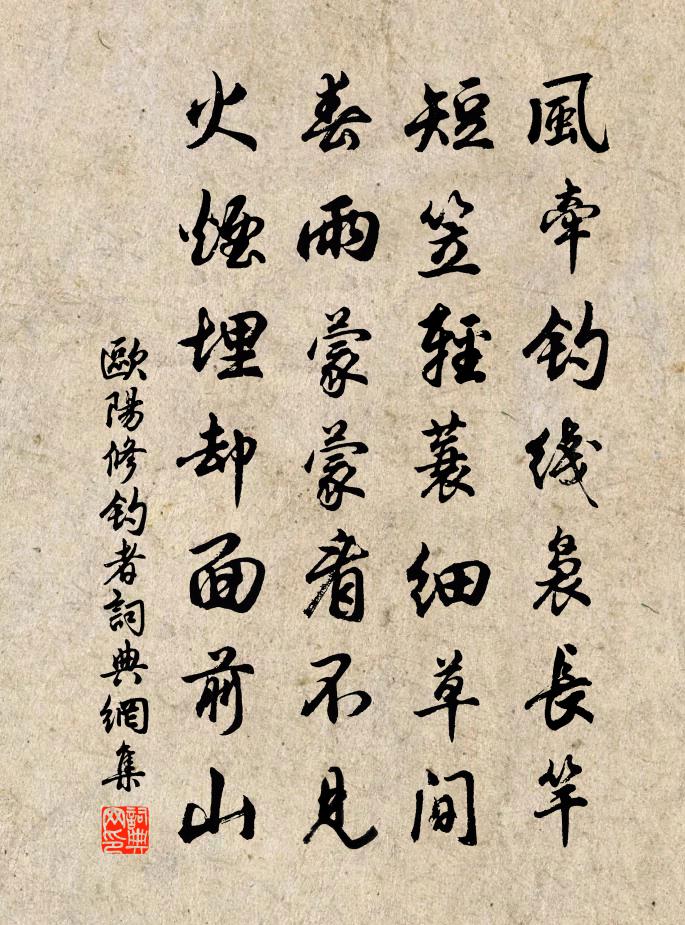 風牽釣綫裊長竿
短笠輕蓑細草間
春雨蒙蒙看不見
火煙埋却面前山
歐陽修釣者詞典網集
詞典
网印